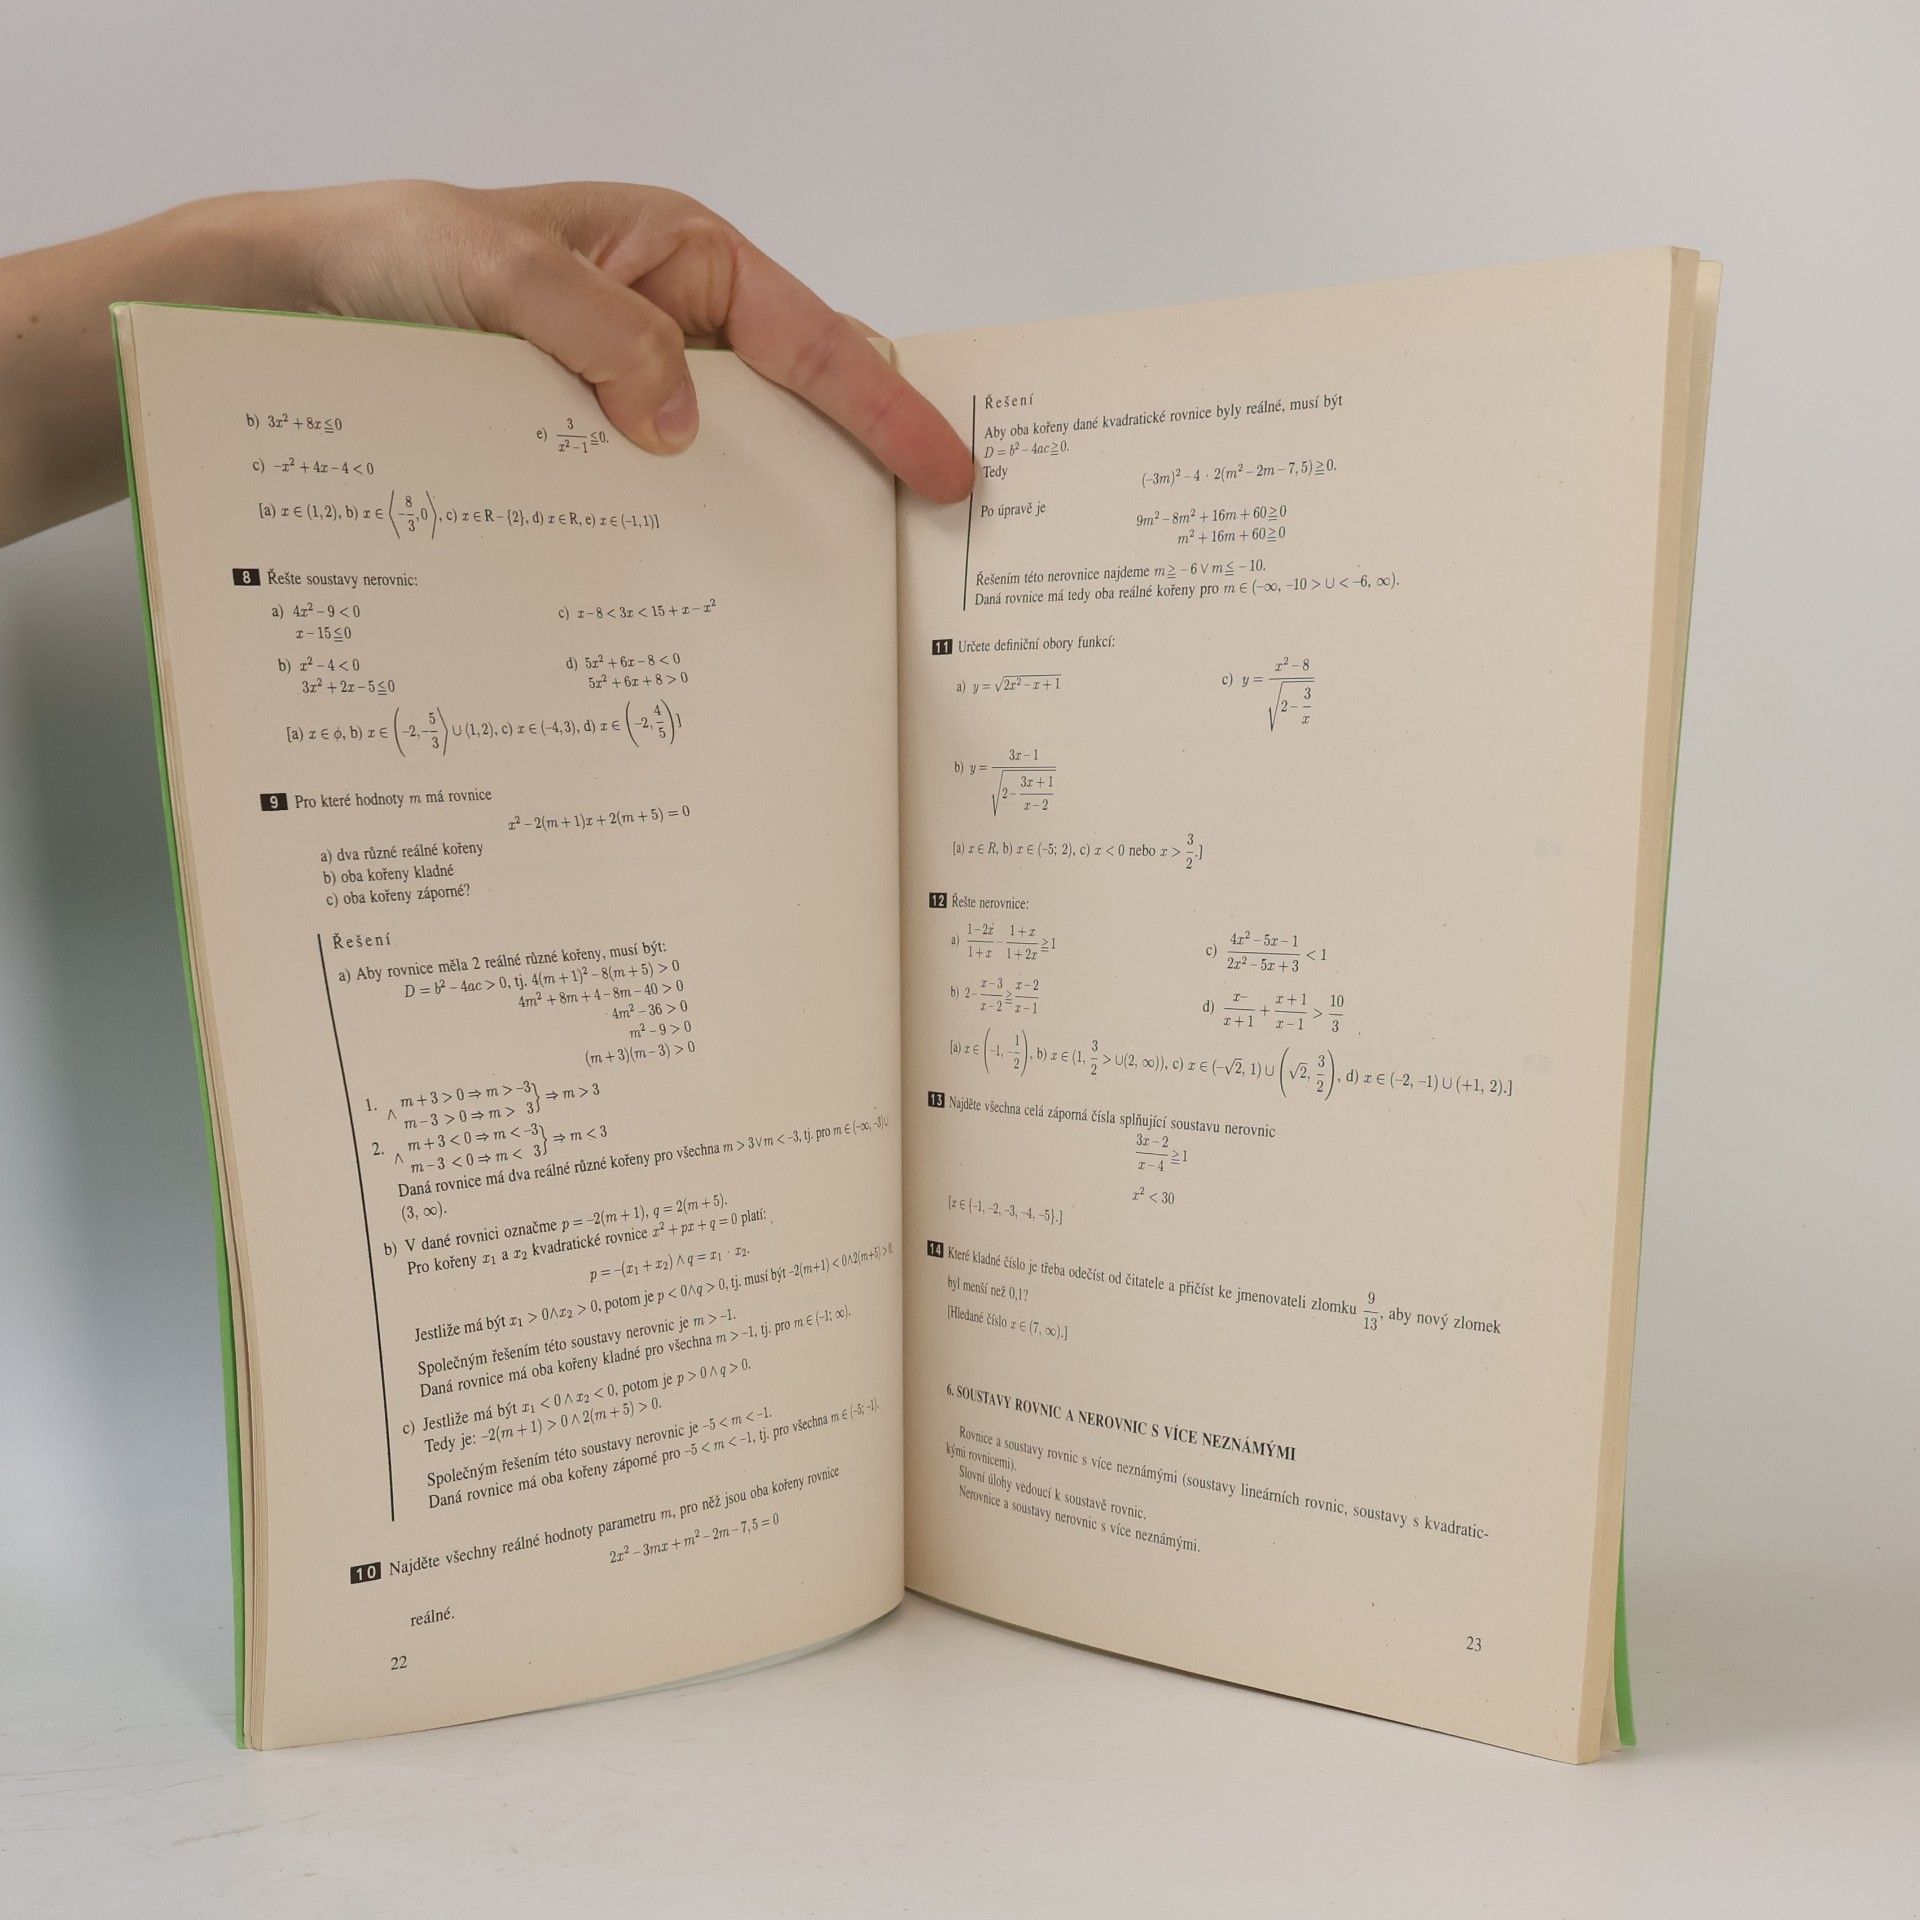 b) 3x² + 8x ≦ 0
e) 3/(x² − 1) ≦ 0.
c) −x² + 4x − 4 < 0
[a) x ∈ (1, 2), b) x ∈ ⟨−8/3, 0⟩, c) x ∈ R − {2}, d) x ∈ R, e) x ∈ (−1, 1)]
8 Řešte soustavy nerovnic:
a) 4x² − 9 < 0
x − 15 ≦ 0
c) x − 8 < 3x < 15 + x − x²
b) x² − 4 < 0
3x² + 2x − 5 ≦ 0
d) 5x² + 6x − 8 < 0
5x² + 6x + 8 > 0
[a) x ∈ ϕ, b) x ∈ (−2, −5/3⟩ ∪ (1, 2), c) x ∈ (−4, 3), d) x ∈ (−2, 4/5)]
9 Pro které hodnoty m má rovnice
x² − 2(m + 1)x + 2(m + 5) = 0
a) dva různé reálné kořeny
b) oba kořeny kladné
c) oba kořeny záporné?
Řešení
a) Aby rovnice měla 2 reálné různé kořeny, musí být:
D = b² − 4ac > 0, tj. 4(m + 1)² − 8(m + 5) > 0
4m² + 8m + 4 − 8m − 40 > 0
4m² − 36 > 0
m² − 9 > 0
(m + 3)(m − 3) > 0
1. m + 3 > 0 ⇒ m > −3
∧ m − 3 > 0 ⇒ m > 3 } ⇒ m > 3
2. m + 3 < 0 ⇒ m < −3
∧ m − 3 < 0 ⇒ m < 3 } ⇒ m < 3
Daná rovnice má dva reálné různé kořeny pro všechna m > 3 ∨ m < −3, tj. pro m ∈ (−∞, −3) ∪
(3, ∞).
b) V dané rovnici označme p = −2(m + 1), q = 2(m + 5).
Pro kořeny x₁ a x₂ kvadratické rovnice x² + px + q = 0 platí:
p = −(x₁ + x₂) ∧ q = x₁ · x₂.
Jestliže má být x₁ > 0 ∧ x₂ > 0, potom je p < 0 ∧ q > 0, tj. musí být −2(m+1) < 0 ∧ 2(m+5) > 0.
Společným řešením této soustavy nerovnic je m > −1.
Daná rovnice má oba kořeny kladné pro všechna m > −1, tj. pro m ∈ (−1; ∞).
c) Jestliže má být x₁ < 0 ∧ x₂ < 0, potom je p > 0 ∧ q > 0.
Tedy je: −2(m + 1) > 0 ∧ 2(m + 5) > 0.
Společným řešením této soustavy nerovnic je −5 < m < −1.
Daná rovnice má oba kořeny záporné pro −5 < m < −1, tj. pro všechna m ∈ (−5; −1).
10 Najděte všechny reálné hodnoty parametru m, pro něž jsou oba kořeny rovnice
2x² − 3mx + m² − 2m − 7,5 = 0
reálné.
22
Řešení
Aby oba kořeny dané kvadratické rovnice byly reálné, musí být
D = b² − 4ac ≧ 0.
Tedy
(−3m)² − 4 · 2(m² − 2m − 7,5) ≧ 0.
Po úpravě je
9m² − 8m² + 16m + 60 ≧ 0
m² + 16m + 60 ≧ 0
Řešením této nerovnice najdeme m ≧ − 6 ∨ m ≦ − 10.
Daná rovnice má tedy oba reálné kořeny pro m ∈ (−∞, −10 > ∪ < −6, ∞).
11 Určete definiční obory funkcí:
a) y = √(2x² − x + 1)
c) y = (x² − 8)/√(2 − 3/x)
b) y = (3x − 1)/√(2 − (3x + 1)/(x − 2))
[a) x ∈ R, b) x ∈ (−5; 2), c) x < 0 nebo x > 3/2.]
12 Řešte nerovnice:
a) (1 − 2x)/(1 + x) − (1 + x)/(1 + 2x) ≧ 1
c) (4x² − 5x − 1)/(2x² − 5x + 3) < 1
b) 2 − (x − 3)/(x − 2) ≧ (x − 2)/(x − 1)
d) x−/(x + 1) + (x + 1)/(x − 1) > 10/3
[a) x ∈ (−1, −1/2), b) x ∈ (1, 3/2 > ∪ (2, ∞)), c) x ∈ (−√2, 1) ∪ (√2, 3/2), d) x ∈ (−2, −1) ∪ (+1, 2).]
13 Najděte všechna celá záporná čísla splňující soustavu nerovnic
(3x − 2)/(x − 4) ≧ 1
x² < 30
[x ∈ {−1, −2, −3, −4, −5}.]
14 Které kladné číslo je třeba odečíst od čitatele a přičíst ke jmenovateli zlomku 9/13, aby nový zlomek
byl menší než 0,1?
[Hledané číslo x ∈ (7, ∞).]
6. SOUSTAVY ROVNIC A NEROVNIC S VÍCE NEZNÁMÝMI
Rovnice a soustavy rovnic s více neznámými (soustavy lineárních rovnic, soustavy s kvadratic-
kými rovnicemi).
Slovní úlohy vedoucí k soustavě rovnic.
Nerovnice a soustavy nerovnic s více neznámými.
23